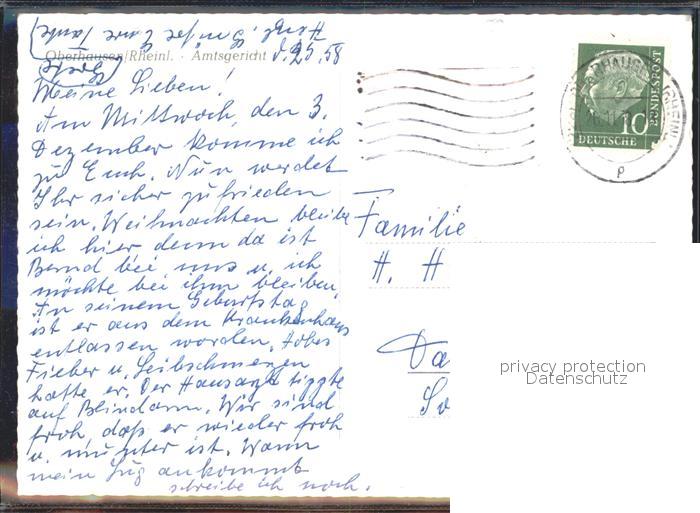 Herzl. Grüße Eure Tante
Grete
Oberhausen/Rheinl. · Amtsgericht d. 25. 58
Meine Lieben!
Am Mittwoch, den 3.
Dezember komme ich
zu Euch. Nun werdet
Ihr sicher zufrieden
sein. Weihnachten bleibe
ich hier denn da ist
Bernd bei uns u. ich
möchte bei ihm bleiben.
An seinem Geburtstag
ist er aus dem Krankenhaus
entlassen worden. Hohes
Fieber u. Leibschmerzen
hatte er. Der Hausarzt tippte
auf Blinddarm. Wir sind
froh, daß er wieder froh
u. munter ist. Wann
mein Zug ankommt
schreibe ich noch.
Familie
H. H
Da
So
10
DEUTSCHE
BUNDESPOST
privacy protection
Datenschutz